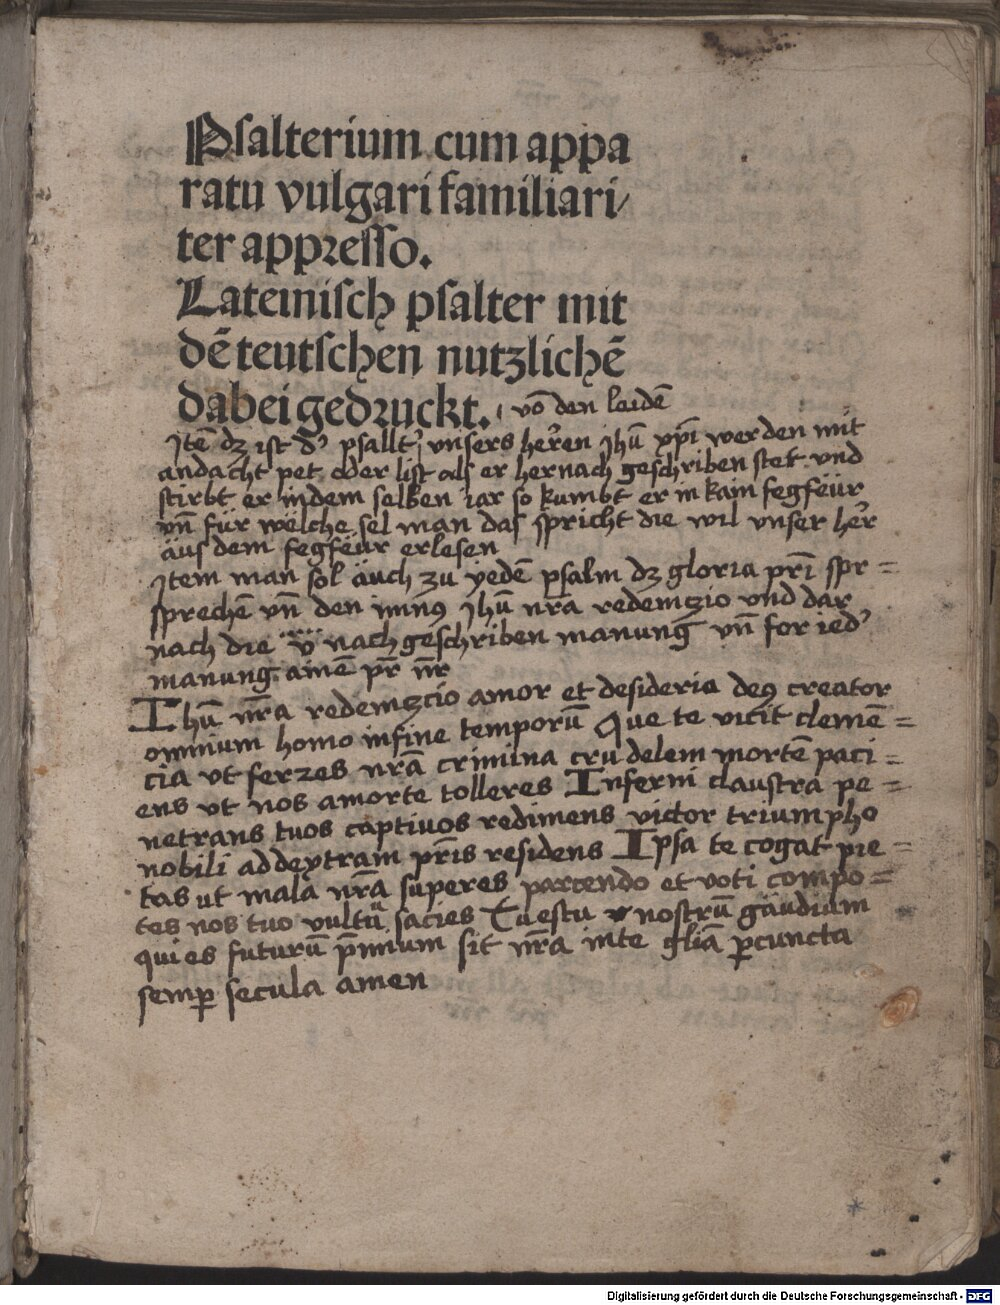 Psalterium cum appa
ratu vulgari familiari⸗
ter appꝛesso.
Lateinisch psalter mit
dē teutschen nutzlichē
dabei gedꝛuckt. vō den leidē
Jtē dz ist dʼ psalltʼ vnsers herren jhū xp̄i werden mit
andacht pet oder list als er hernach geschriben stet vnd
stirbt er in dem selben iar so kumbt er in kain fegfeür
vn̄ für welche sel man das spricht die wil vnser her̄
äus dem fegfeür erlesen
Jtem man sol äuch zu yedē psalm dz gloria pr̄i spr=
sprechē vn̄ den imnꝯ jhū nr̄a redemczio vnd dar
nach die v̈ nach geschriben manung vn̄ for iedʼ
manung amē pr̄ nr̄
Ihū nr̄a redemczio amor et desideria deꝯ creator
omnium homo in fine temporū Que te vicit clemē=
cia vt ferres nr̄ā crimina crudelem mortē paci=
ens vt nos amorte tolleres Inferni claustra pe=
netrans tuos captiuos redimens victor triumpho
nobili ad dextram pr̄is residens Ipsa te cogat pie=
tas ut mala nr̄ā superes parcendo et voti compo=
tes nos tuo vultū sacies Tu estu nostrū gäudium
qui es futurū p̄mium sit nr̄a inte gl̄ia ꝑcuncta
semꝑ secula amen
Digitalisierung gefördert durch die Deutsche Forschungsgemeinschaft - DFG